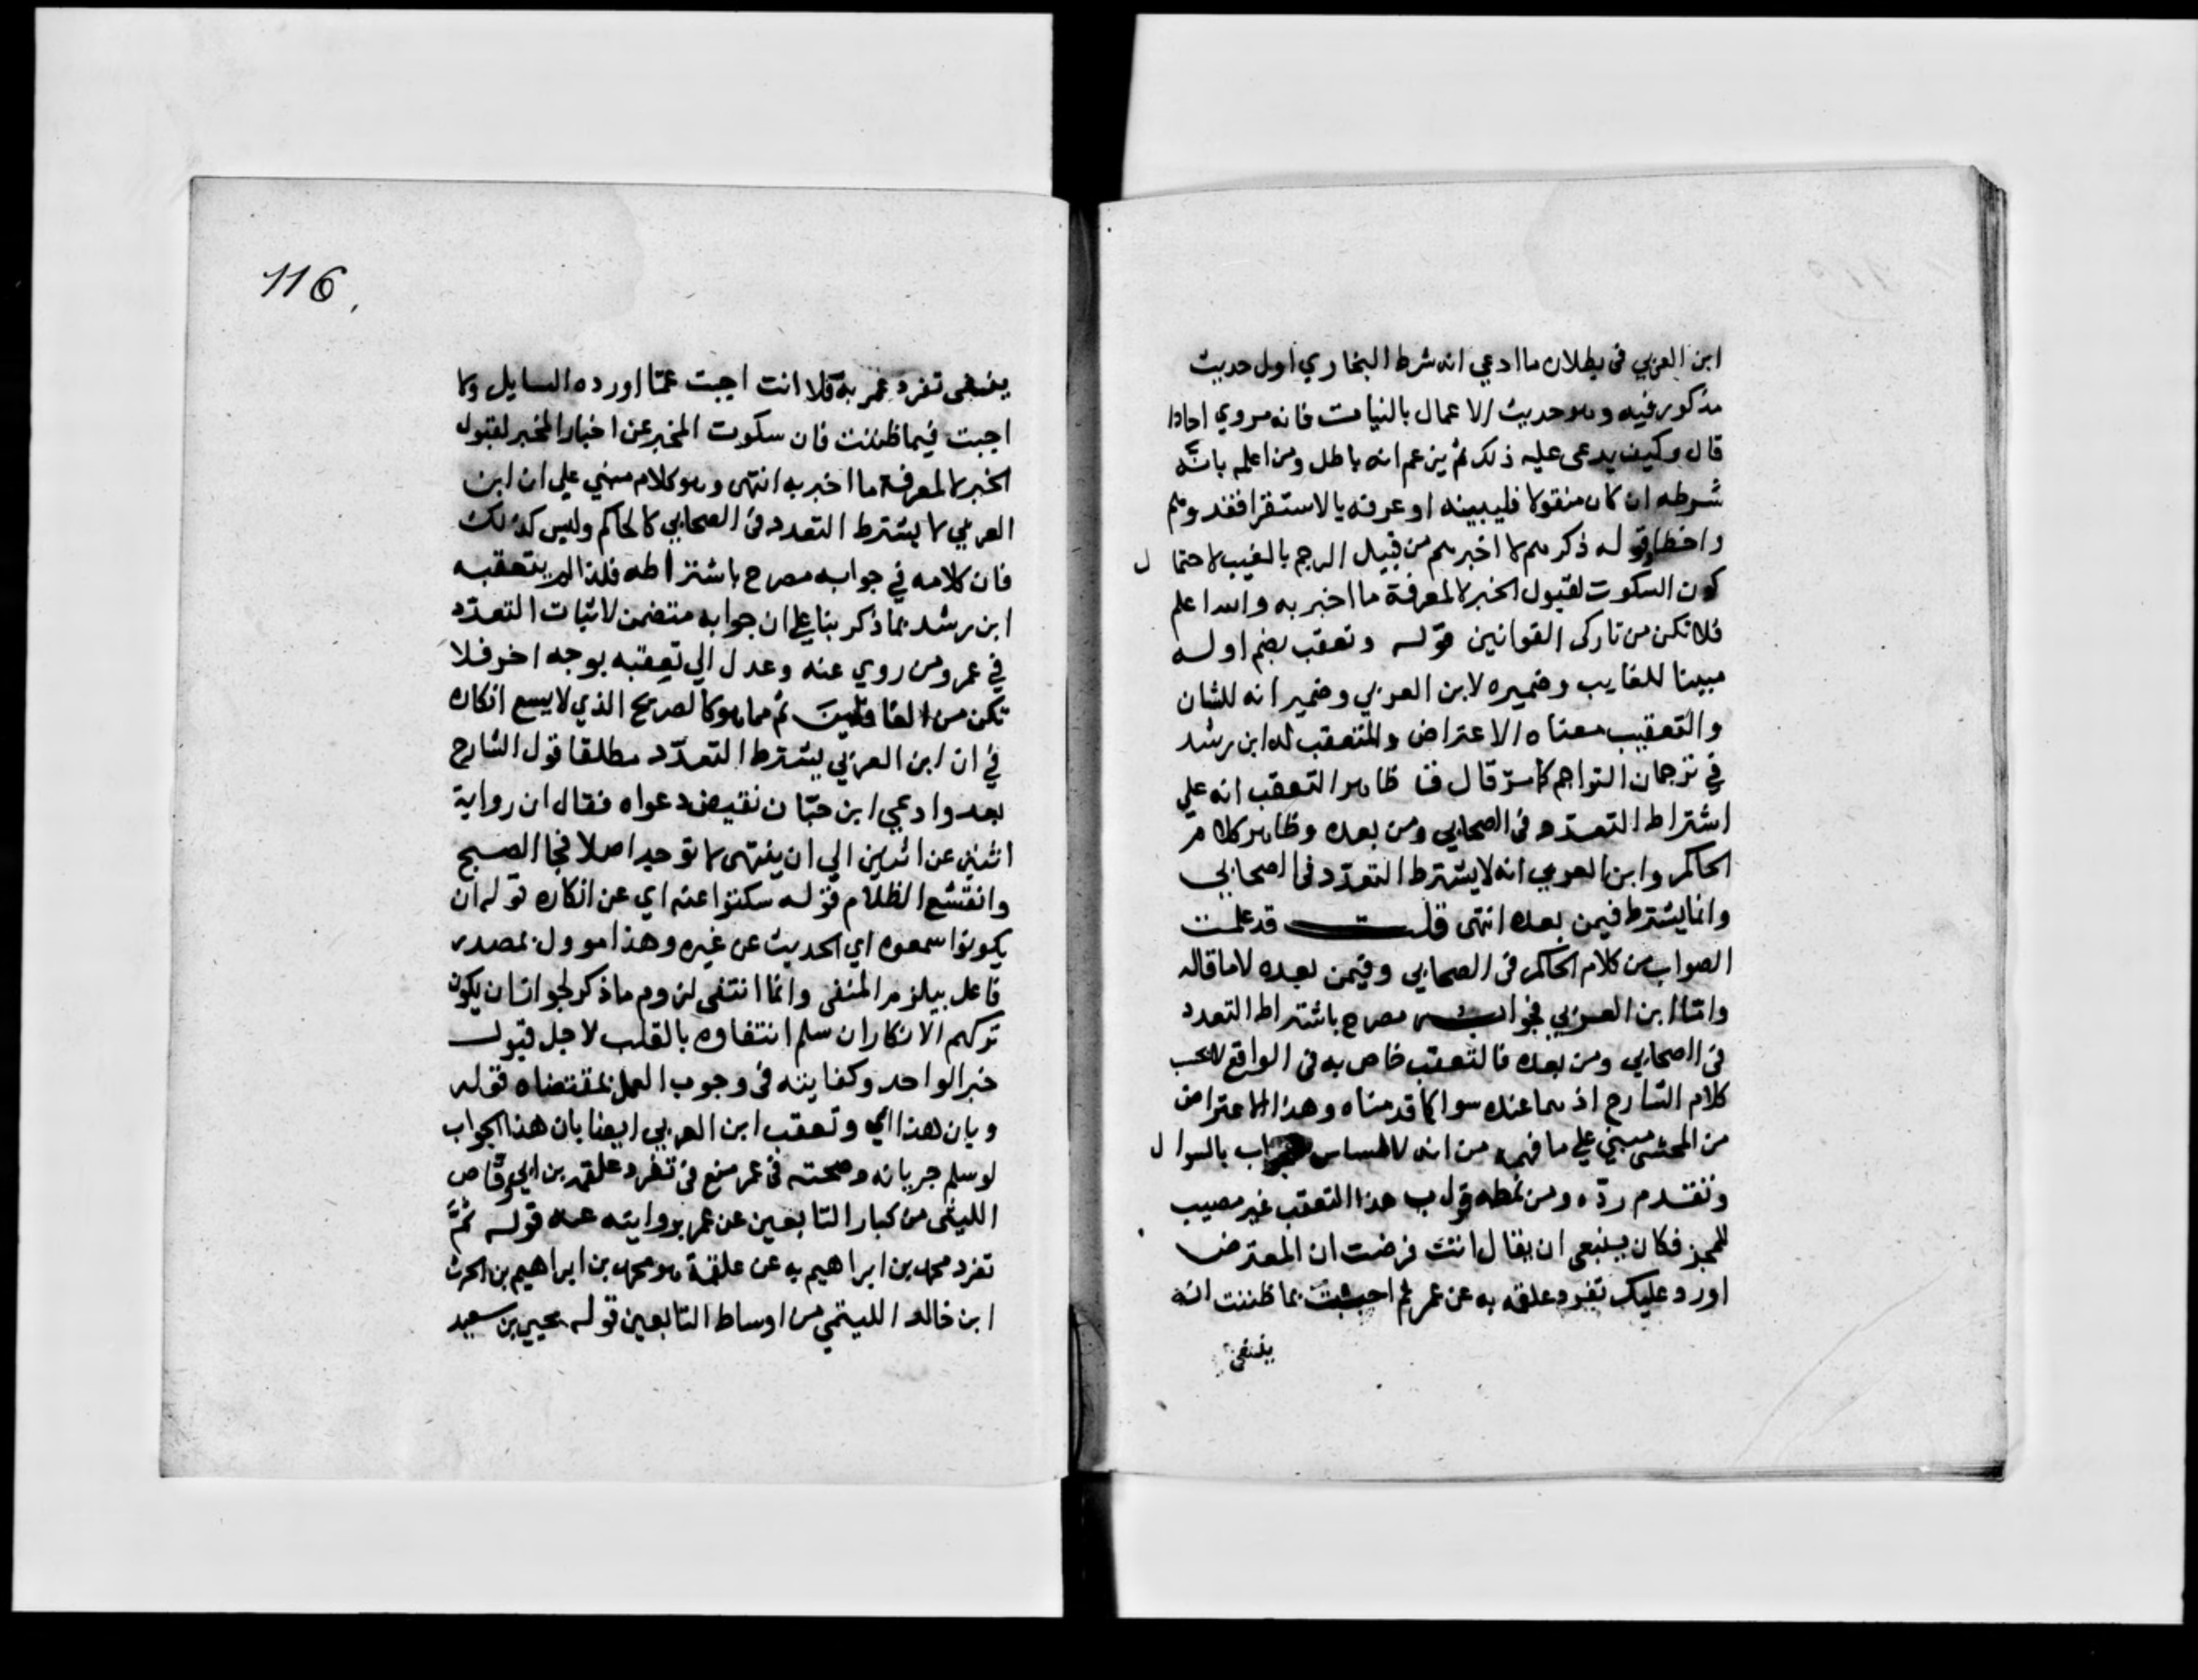 ابن العربي فى بطلان ما ادعي انه شرط البخاري اول حديث
مذكور فيه وهو حديث الاعمال بالنيات فانه مروي احادا
قال وكيف يدعى عليه ذلك ثم يزعم انه باطل ومن اعلم بانّه
شرطه ان كان منقولا فليبينه او عرفه بالاستقرا فقد وهم
واخطا قوله ذكرهم لا اخبرهم من قبيل الرجم بالغيب لاحتمال
كون السكوت لقبول الخبر لا لمعرفة ما اخبر به والله اعلم
فلا تكن من تاركى القوانين قوله وتعقب بضم اوله
مبينا للغايب وضميره لابن العربي وضمير انه للشان
والتعقيب معناه الاعتراض والمتعقب له ابن رشد
في ترجمان التراجم كما مرّ قال ق ظاهر التعقب انه علي
اشتراط التعدّد فى الصحابي ومن بعده وظاهر كلام
الحاكم وابن العربي انه لا يشترط التعدّد فى الصحابي
وانما يشترط فيمن بعده انتهى قلت قد علمت
الصواب من كلام الحاكم فى الصحابي وفيمن بعده لا ما قاله
وامّا ابن العربي فجوابه مصرح باشتراط التعدد
فى الصحابي ومن بعده فالتعقب خاص به فى الواقع لا بحسب
كلام الشارح اذ هما عنده سوا كما قدمناه وهذا الاعتراض
من المحشى مبني علي ما فهمه من انه لا مساس للجواب بالسوال
وتقدم ردّه ومن نمطه قول ب هذا التعقب غير مصيب
للمجز فكان ينبغى ان يقال انت فرضت ان المعترض
اورد عليك تفرد علقمه به عن عمر ثم اجبت بما ظننت انه
ينفى
116
ينفى تفرد عمر به فلا انت اجبت عمّا اورده السايل ولا
اجبت فيما ظننت فان سكوت المخبر عن اخبار المخبر لقبول
الخبر لا لمعرفة ما اخبر به انتهى وهو كلام مبني علي ان ابن
العربي لا يشترط التعدد فى الصحابي كالحاكم وليس كذلك
فان كلامه في جوابه مصرح باشتراطه فلذا لم يتعقبه
ابن رشد بما ذكر بنا علي ان جوابه متضمن لاثبات التعدّد
في عمر ومن روي عنه وعدل الي تعقبه بوجه اخر فلا
تكن من الغافلين ثم مما هو كالصريح الذي لا يسع انكاره
في ان ابن العربي يشترط التعدّد مطلقا قول الشارح
بعد وادعي ابن حبّان نقيض دعواه فقال ان رواية
اثنين عن اثنين الي ان ينتهى لا توجد اصلا فجا الصبح
وانقشع الظلام قوله سكتوا عنه اي عن انكاره قوله ان
يكونوا سمعوه اي الحديث عن غيره وهذا موول بمصدر
فاعل بيلزم المنفى وانما انتفى لزوم ما ذكر لجواز ان يكون
تركهم الانكار ان سلم انتفاوه بالقلب لاجل قبول
خبر الواحد وكفايته فى وجوب العمل بمقتضاه قوله
وبان هذا اي وتعقب ابن العربي ايضا بان هذا الجواب
لو سلم جريانه وصحته فى عمر منع فى تفرد علقمه بن ابي وقّاص
الليثى من كبار التابعين عن عمر بروايته عنه قوله ثمّ
تفرد محمد بن ابراهيم به عن علقمة هو محمد بن ابراهيم بن الحرث
ابن خالد الليتمي من اوساط التابعين قوله يحيي بن سعيد